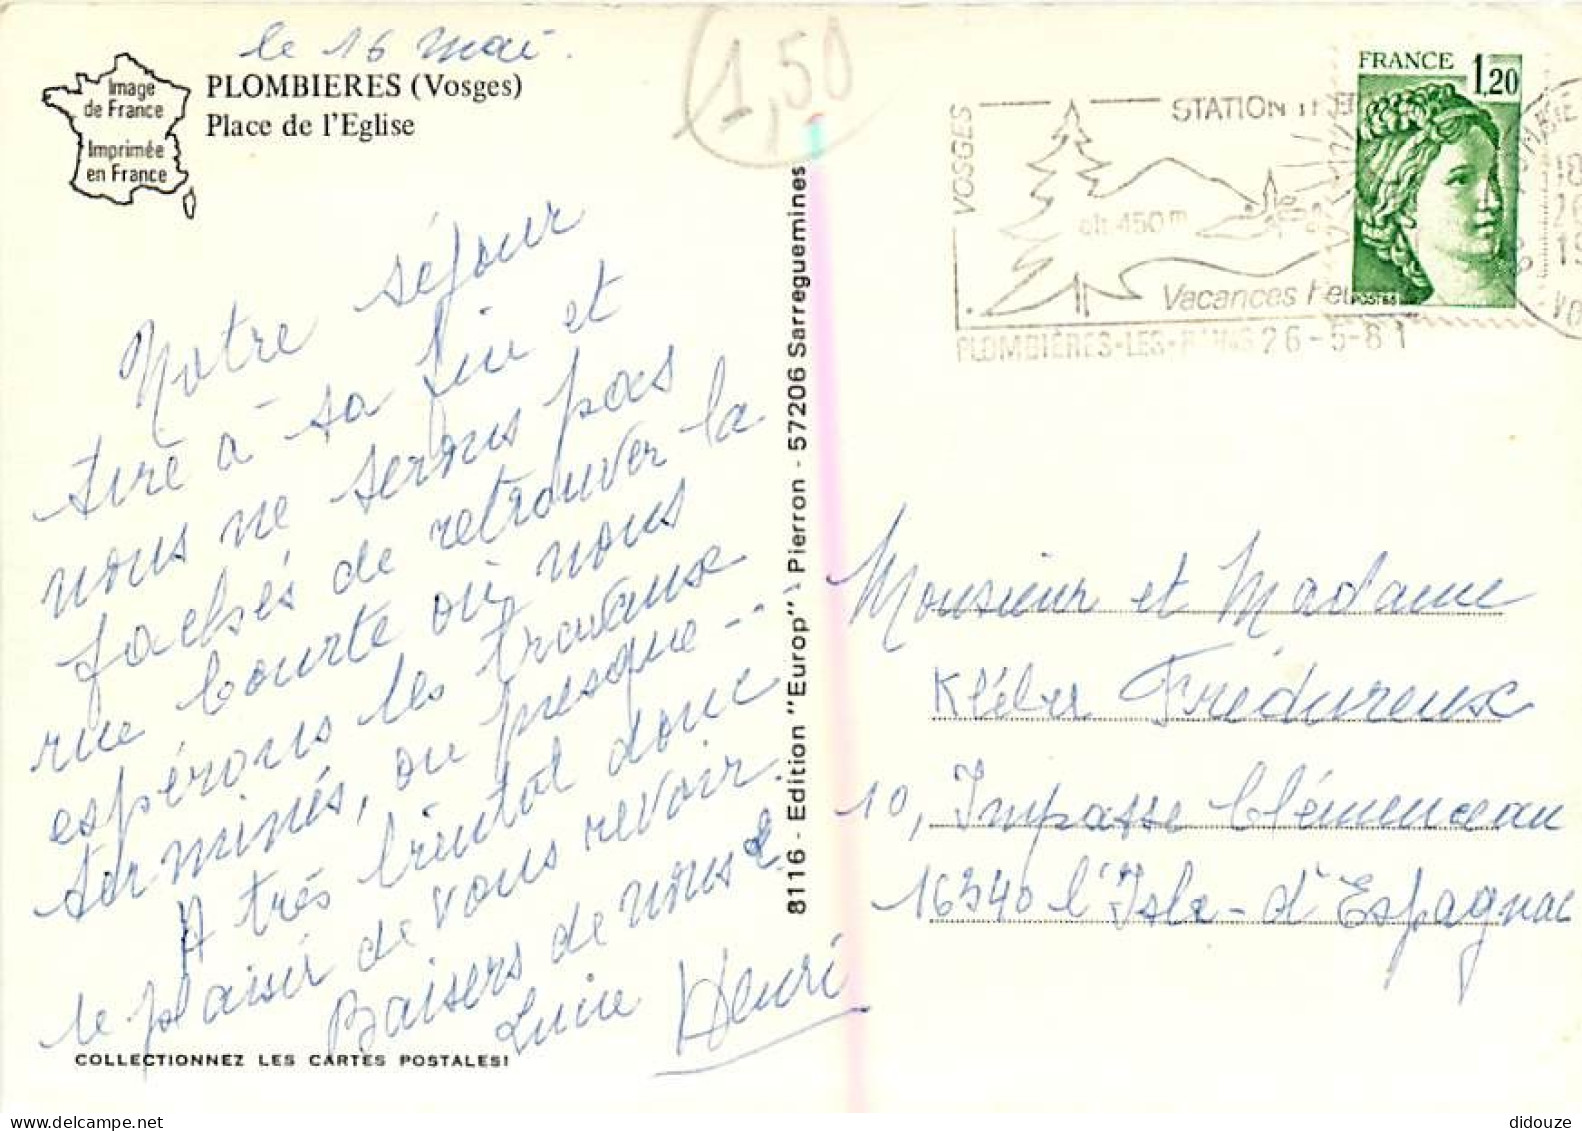 le 16 mai.
PLOMBIERES (Vosges)
Place de l'Eglise
Image
de France
Imprimée
en France
1,50
Notre séjour
tire à sa fin et
nous ne serons pas
fachés de retrouver la
rue Courte où nous
espérons les travaux
terminés, ou presque -
A très bientôt donc
le plaisir de vous revoir.
Baisers de nous 2
Lucie Henri
COLLECTIONNEZ LES CARTES POSTALES!
8116 - Edition "Europ" - Pierron - 57206 Sarreguemines
FRANCE 1,20
POSTES
STATION
VOSGES
alt. 450 m
Vacances
PLOMBIÈRES-LES-BAINS 26-5-81
Monsieur et Madame
Kléber Frédureux
10, Impasse Clémenceau
16340 l'Isle-d'Espagnac
didouze